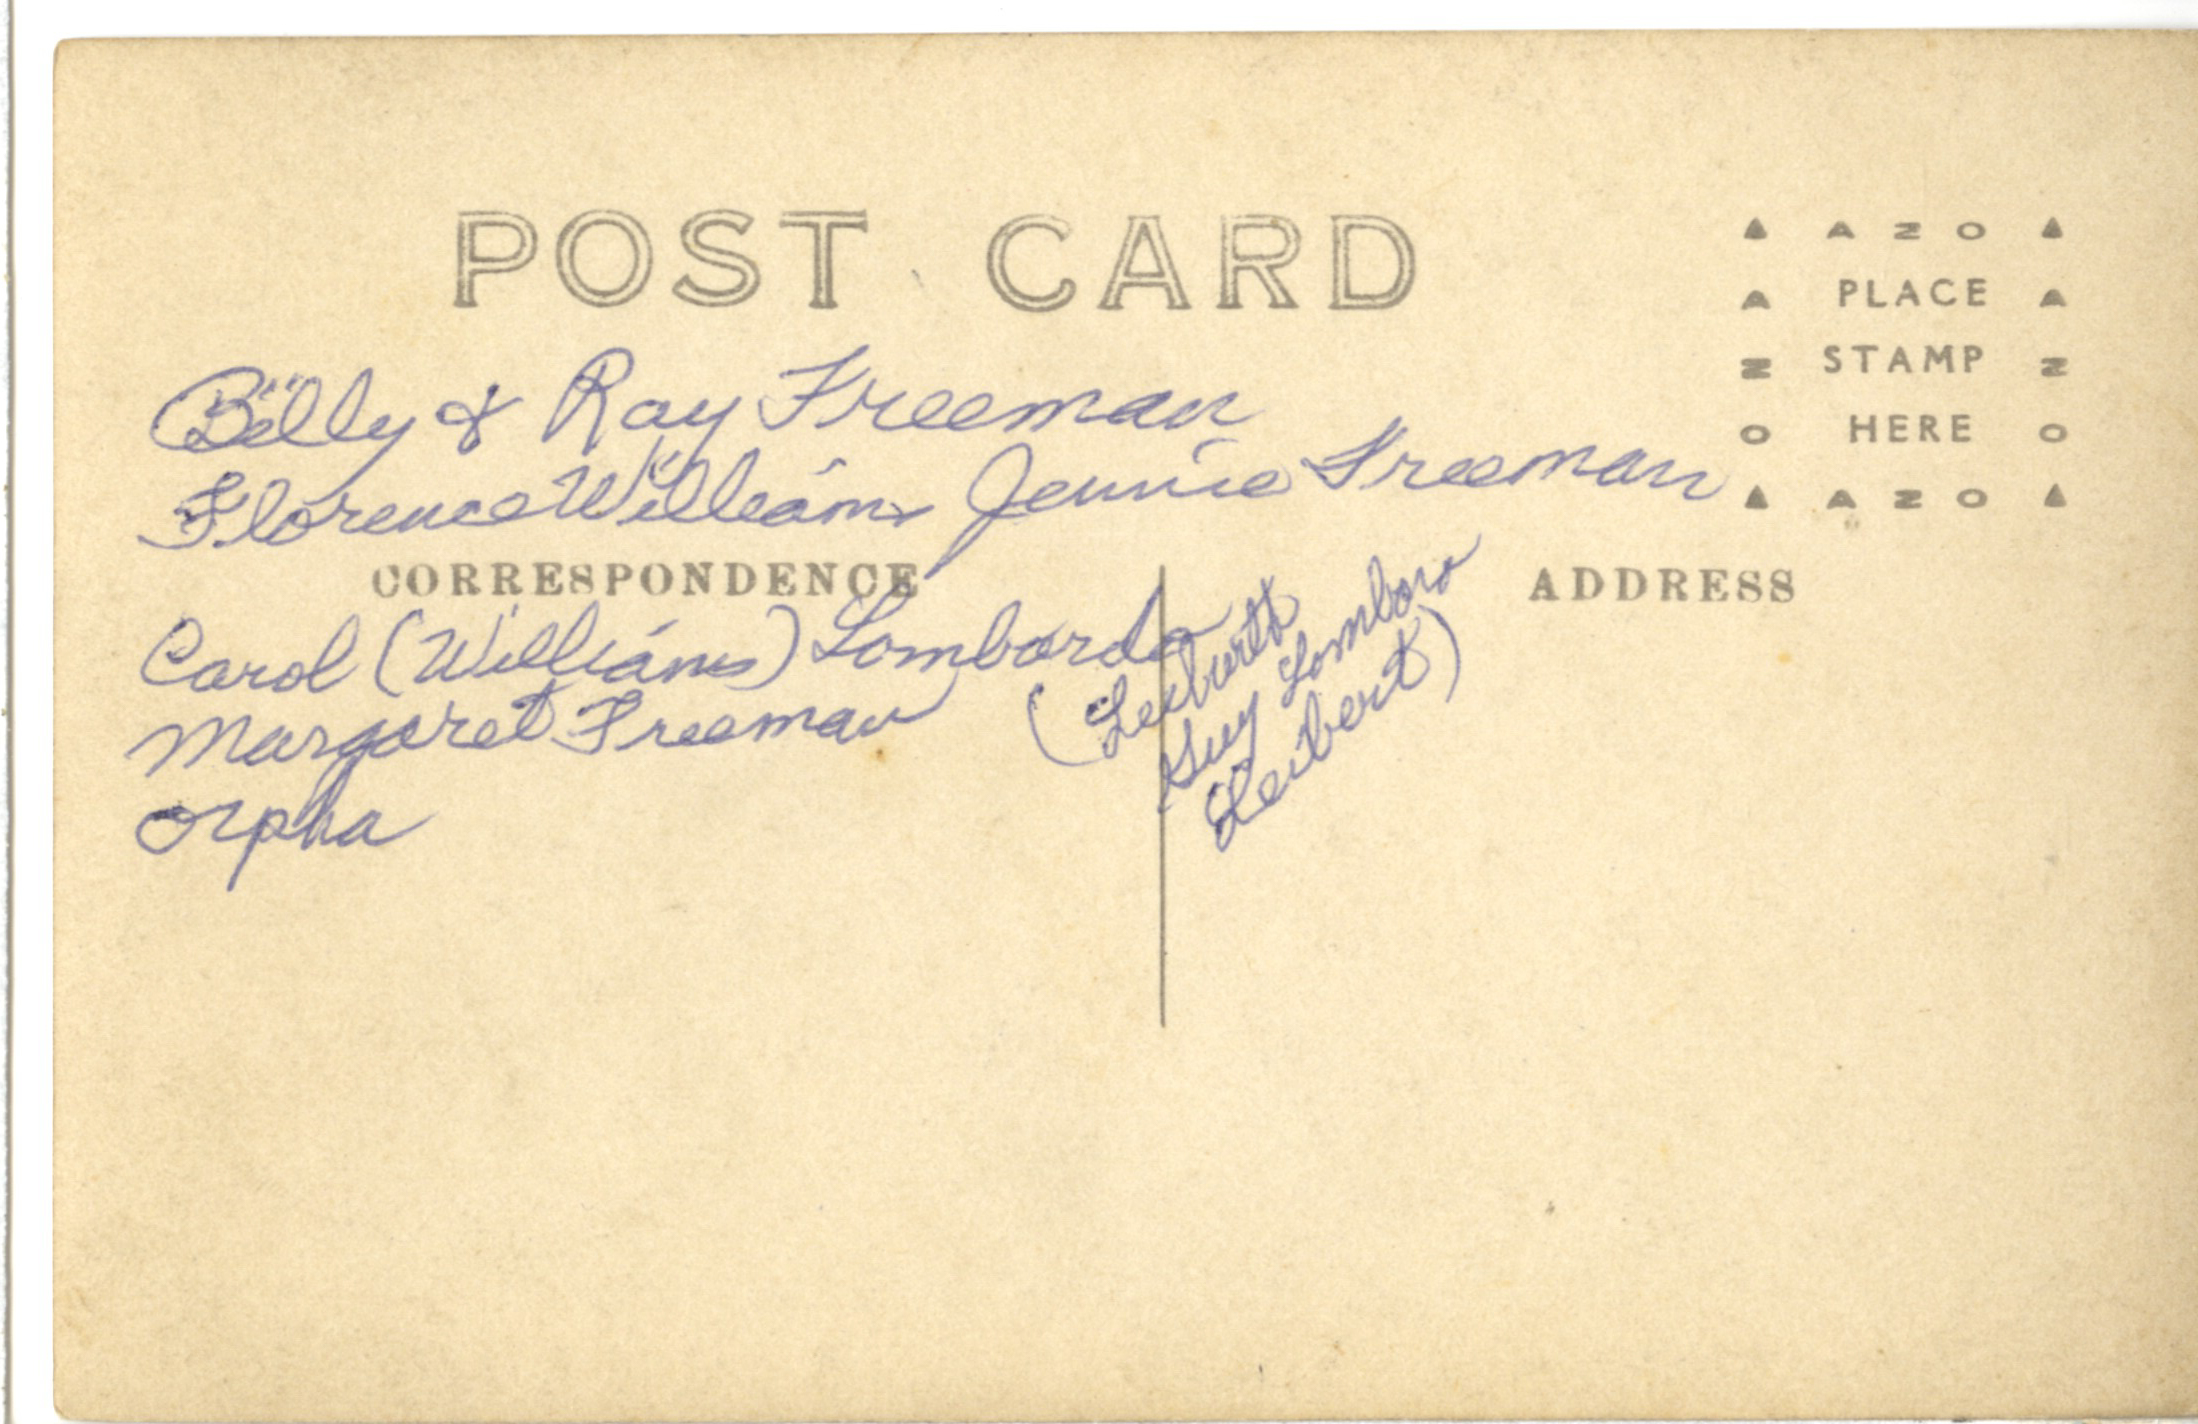 POST CARD
AZO
PLACE
STAMP
HERE
AZO
AZO
AZO
Billy & Ray Freeman
Florence Williams Jennie Freeman
CORRESPONDENCE
ADDRESS
Carol (Williams) Lombardo
Margaret Freeman
Orpha
(
Guy Lombaro
Leibert)